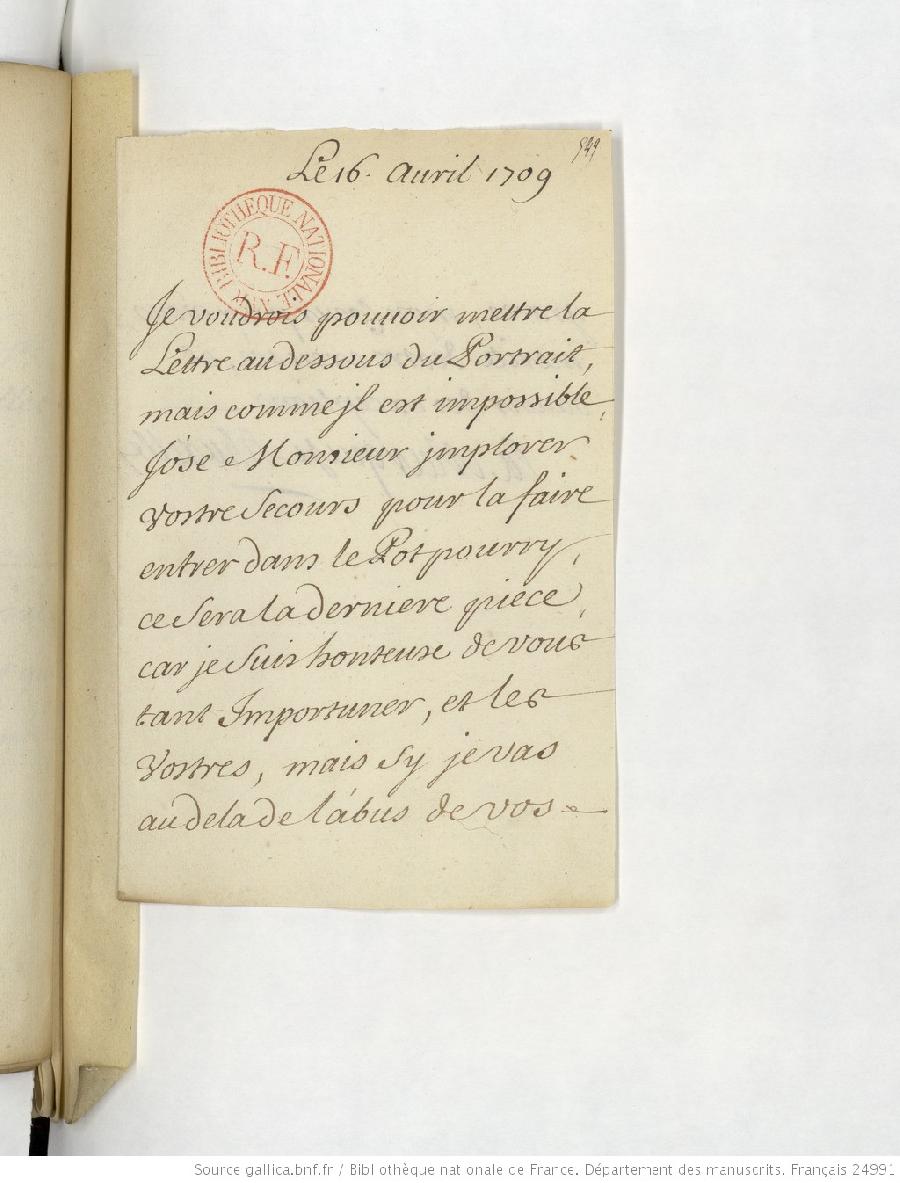 Le 16. Auril 1709
BIBLIOTHEQUE NATIONALE
R.F.
Je voudrois pouuoir mettre la
Lettre au dessous du Portrait,
mais comme jl est impossible,
J'ose Monsieur jmplorer
vostre Secours pour la faire
entrer dans le Potpourry,
ce Sera la derniere piece,
car je Suis honteuse de vous
tant Importuner, et les
Vostres, mais Sy je vas
au dela de l'abus de vos
Source gallica.bnf.fr / Bibliothèque nationale de France. Département des manuscrits. Français 24991